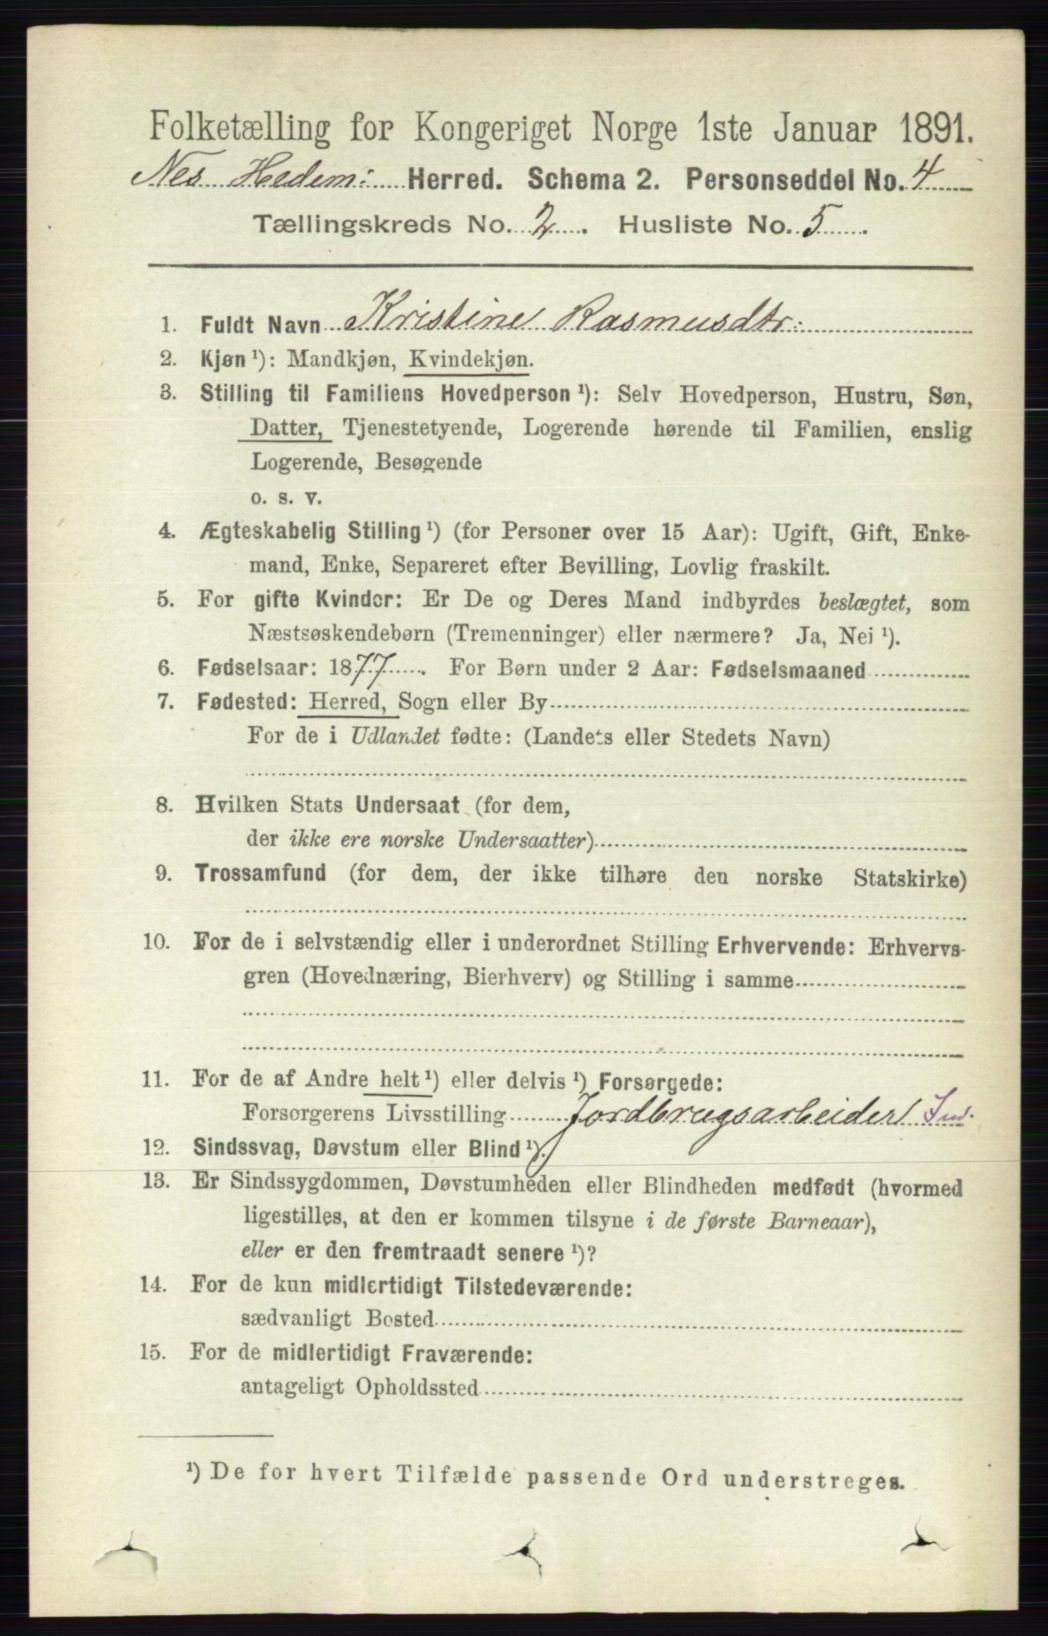 Folketælling for Kongeriget Norge 1ste Januar 1891.
Nes Hedem: Herred. Schema 2. Personseddel No. 4
Tællingskreds No. 2. Husliste No. 5.
1. Fuldt Navn Kristine Rasmusdtr:
2. Kjøn ¹): Mandkjøn, Kvindekjøn.
3. Stilling til Familiens Hovedperson ¹): Selv Hovedperson, Hustru, Søn,
Datter, Tjenestetyende, Logerende hørende til Familien, enslig
Logerende, Besøgende
o. s. v.
4. Ægteskabelig Stilling ¹) (for Personer over 15 Aar): Ugift, Gift, Enke-
mand, Enke, Separeret efter Bevilling, Lovlig fraskilt.
5. For gifte Kvinder: Er De og Deres Mand indbyrdes beslægtet, som
Næstsøskendebørn (Tremenninger) eller nærmere? Ja, Nei ¹).
6. Fødselsaar: 1877. For Børn under 2 Aar: Fødselsmaaned
7. Fødested: Herred, Sogn eller By
For de i Udlandet fødte: (Landets eller Stedets Navn)
8. Hvilken Stats Undersaat (for dem,
der ikke ere norske Undersaatter)
9. Trossamfund (for dem, der ikke tilhøre den norske Statskirke)
10. For de i selvstændig eller i underordnet Stilling Erhvervende: Erhvervs-
gren (Hovednæring, Bierhverv) og Stilling i samme
11. For de af Andre helt ¹) eller delvis ¹) Forsørgede:
Forsørgerens Livsstilling Jordbrugsarbeider
12. Sindssvag, Døvstum eller Blind ¹).
13. Er Sindssygdommen, Døvstumheden eller Blindheden medfødt (hvormed
ligestilles, at den er kommen tilsyne i de første Barneaar),
eller er den fremtraadt senere ¹)?
14. For de kun midlertidigt Tilstedeværende:
sædvanligt Bosted
15. For de midlertidigt Fraværende:
antageligt Opholdssted
¹) De for hvert Tilfælde passende Ord understreges.